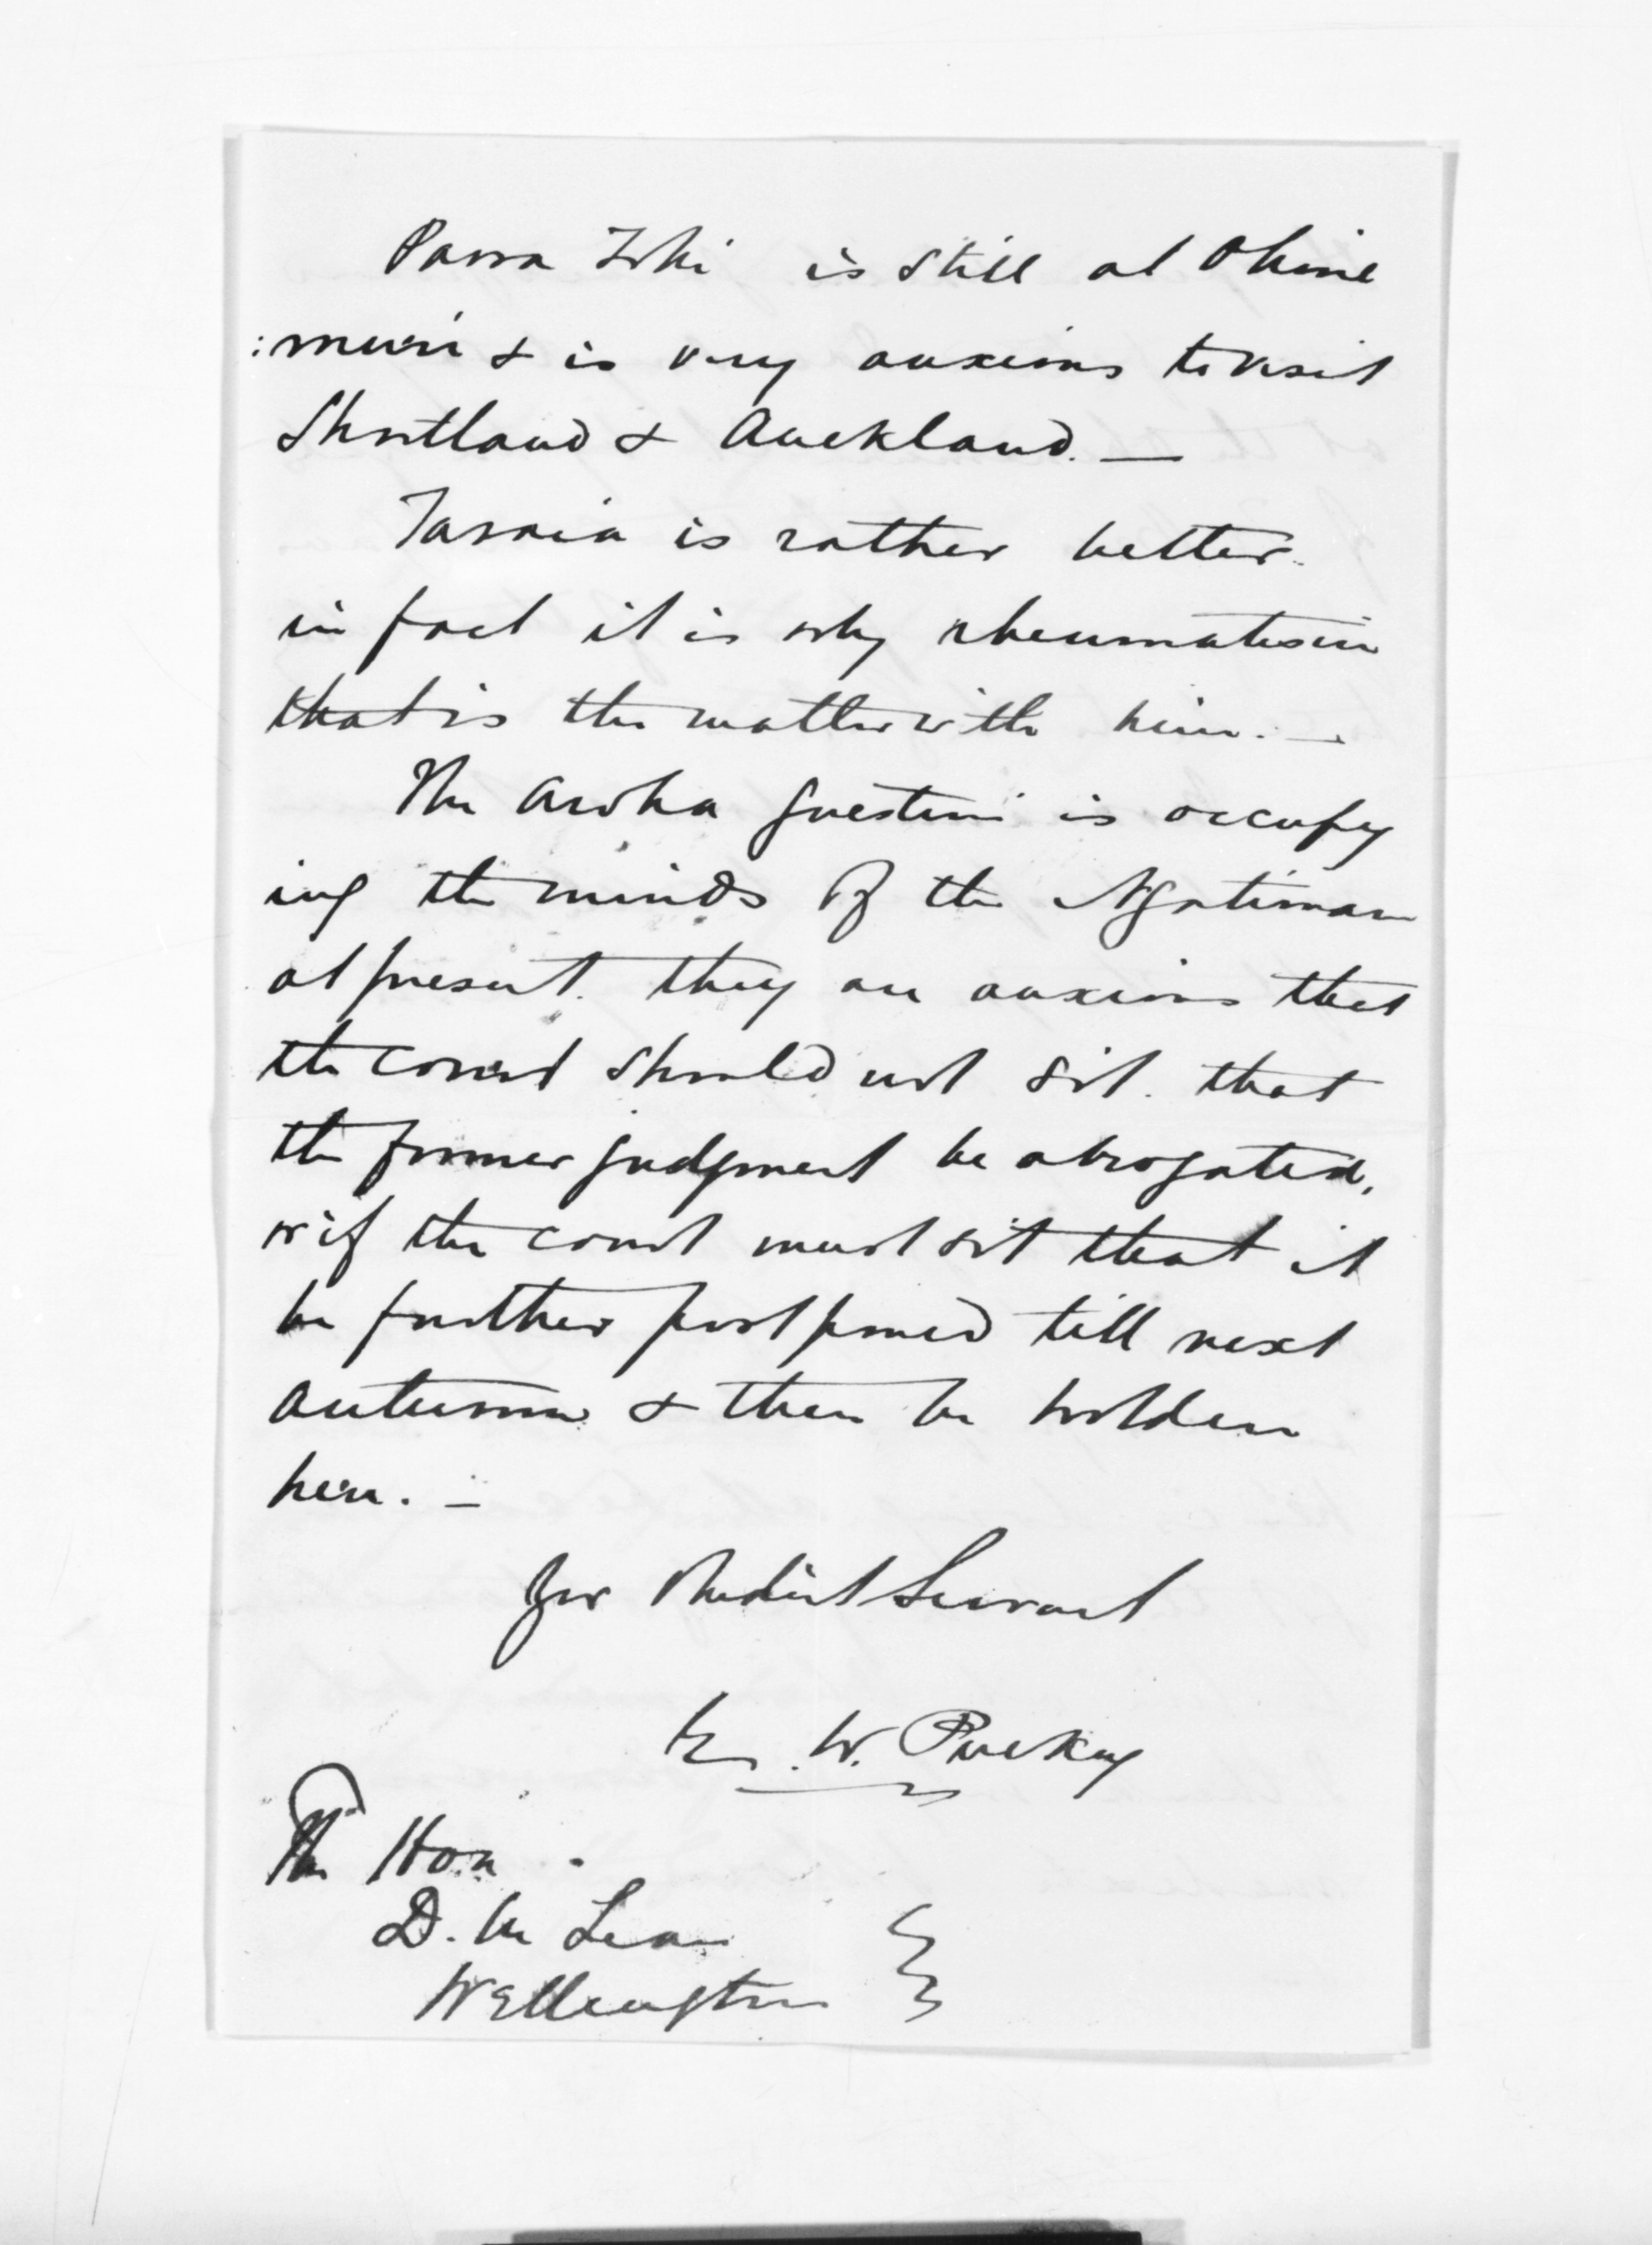 is still at Ohine
:muri & is very anxious to visit
Shortland & Auckland. —
Taraia is rather better.
in fact it is only rheumatism
that is the matter with him. —
The Aroha question is occupy
ing the minds of the Ngatimaru
at present. they are anxious that
the court should not sit. that
the former judgment be abrogated,
or if the court must sit that it
be further postponed till next
autumn & then be holden
here. —
Yr Obedient Servant
E. W. Puckey
The Hon
D. McLean
Wellington